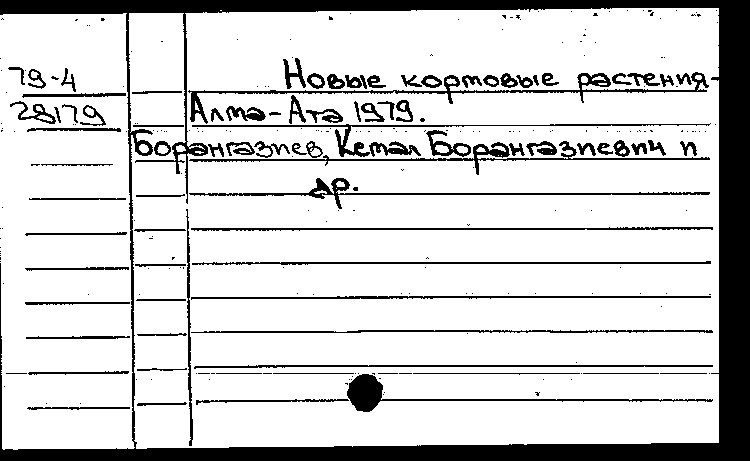 79-4
28179
Новые кормовые растения-
Алма-Ата 1979.
Борангазиев, Кемал Борангазиевич и
др.